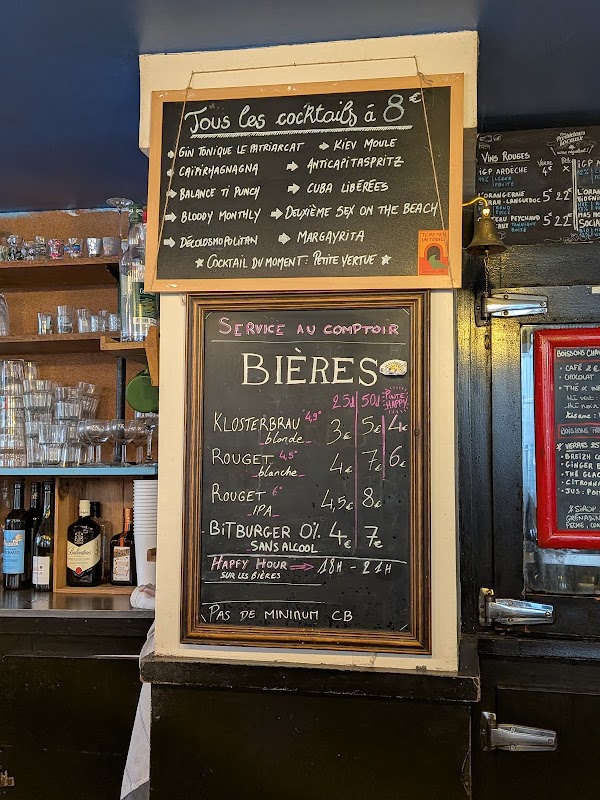 Tous les cocktails à 8€
→ GIN TONIQUE LE PATRIARCAT → KIEV MOULE
→ CAIPIRHAGNAGNA → ANTICAPITASPRITZ
→ BALANCE TI PUNCH → CUBA LIBÉRÉES
→ BLOODY MONTHLY → DEUXIÈME SEX ON THE BEACH
→ DÉCOLOSMOPOLITAN → MARGAYRITA
★ COCKTAIL DU MOMENT: PETITE VERTUE ★
SERVICE AU COMPTOIR
BIÈRES
25cl 50cl PINTE HAPPY!
KLOSTERBRAU 4,9° 3€ 5€ 4€
blonde
ROUGET 4,5° 4€ 7€ 6€
blanche
ROUGET 6° 4,5€ 8€
IPA
BITBURGER 0% 4€ 7€
SANS ALCOOL
HAPPY HOUR → 18H - 21H
SUR LES BIÈRES
PAS DE MINIMUM CB
VINS ROUGES VERRE
IGP ARDÈCHE 4€
L'ORANGERAIE 5€ 22€
5€ 22€
BOISSONS
• CAFÉ 2€
• CHOCOLAT
thé vert
thé noir
• VERRES 25
• BREIZH
• GINGER
• THÉ GLAC
• CITRONNA
• JUS:
SIROP
GRENADIN
Ballantine's